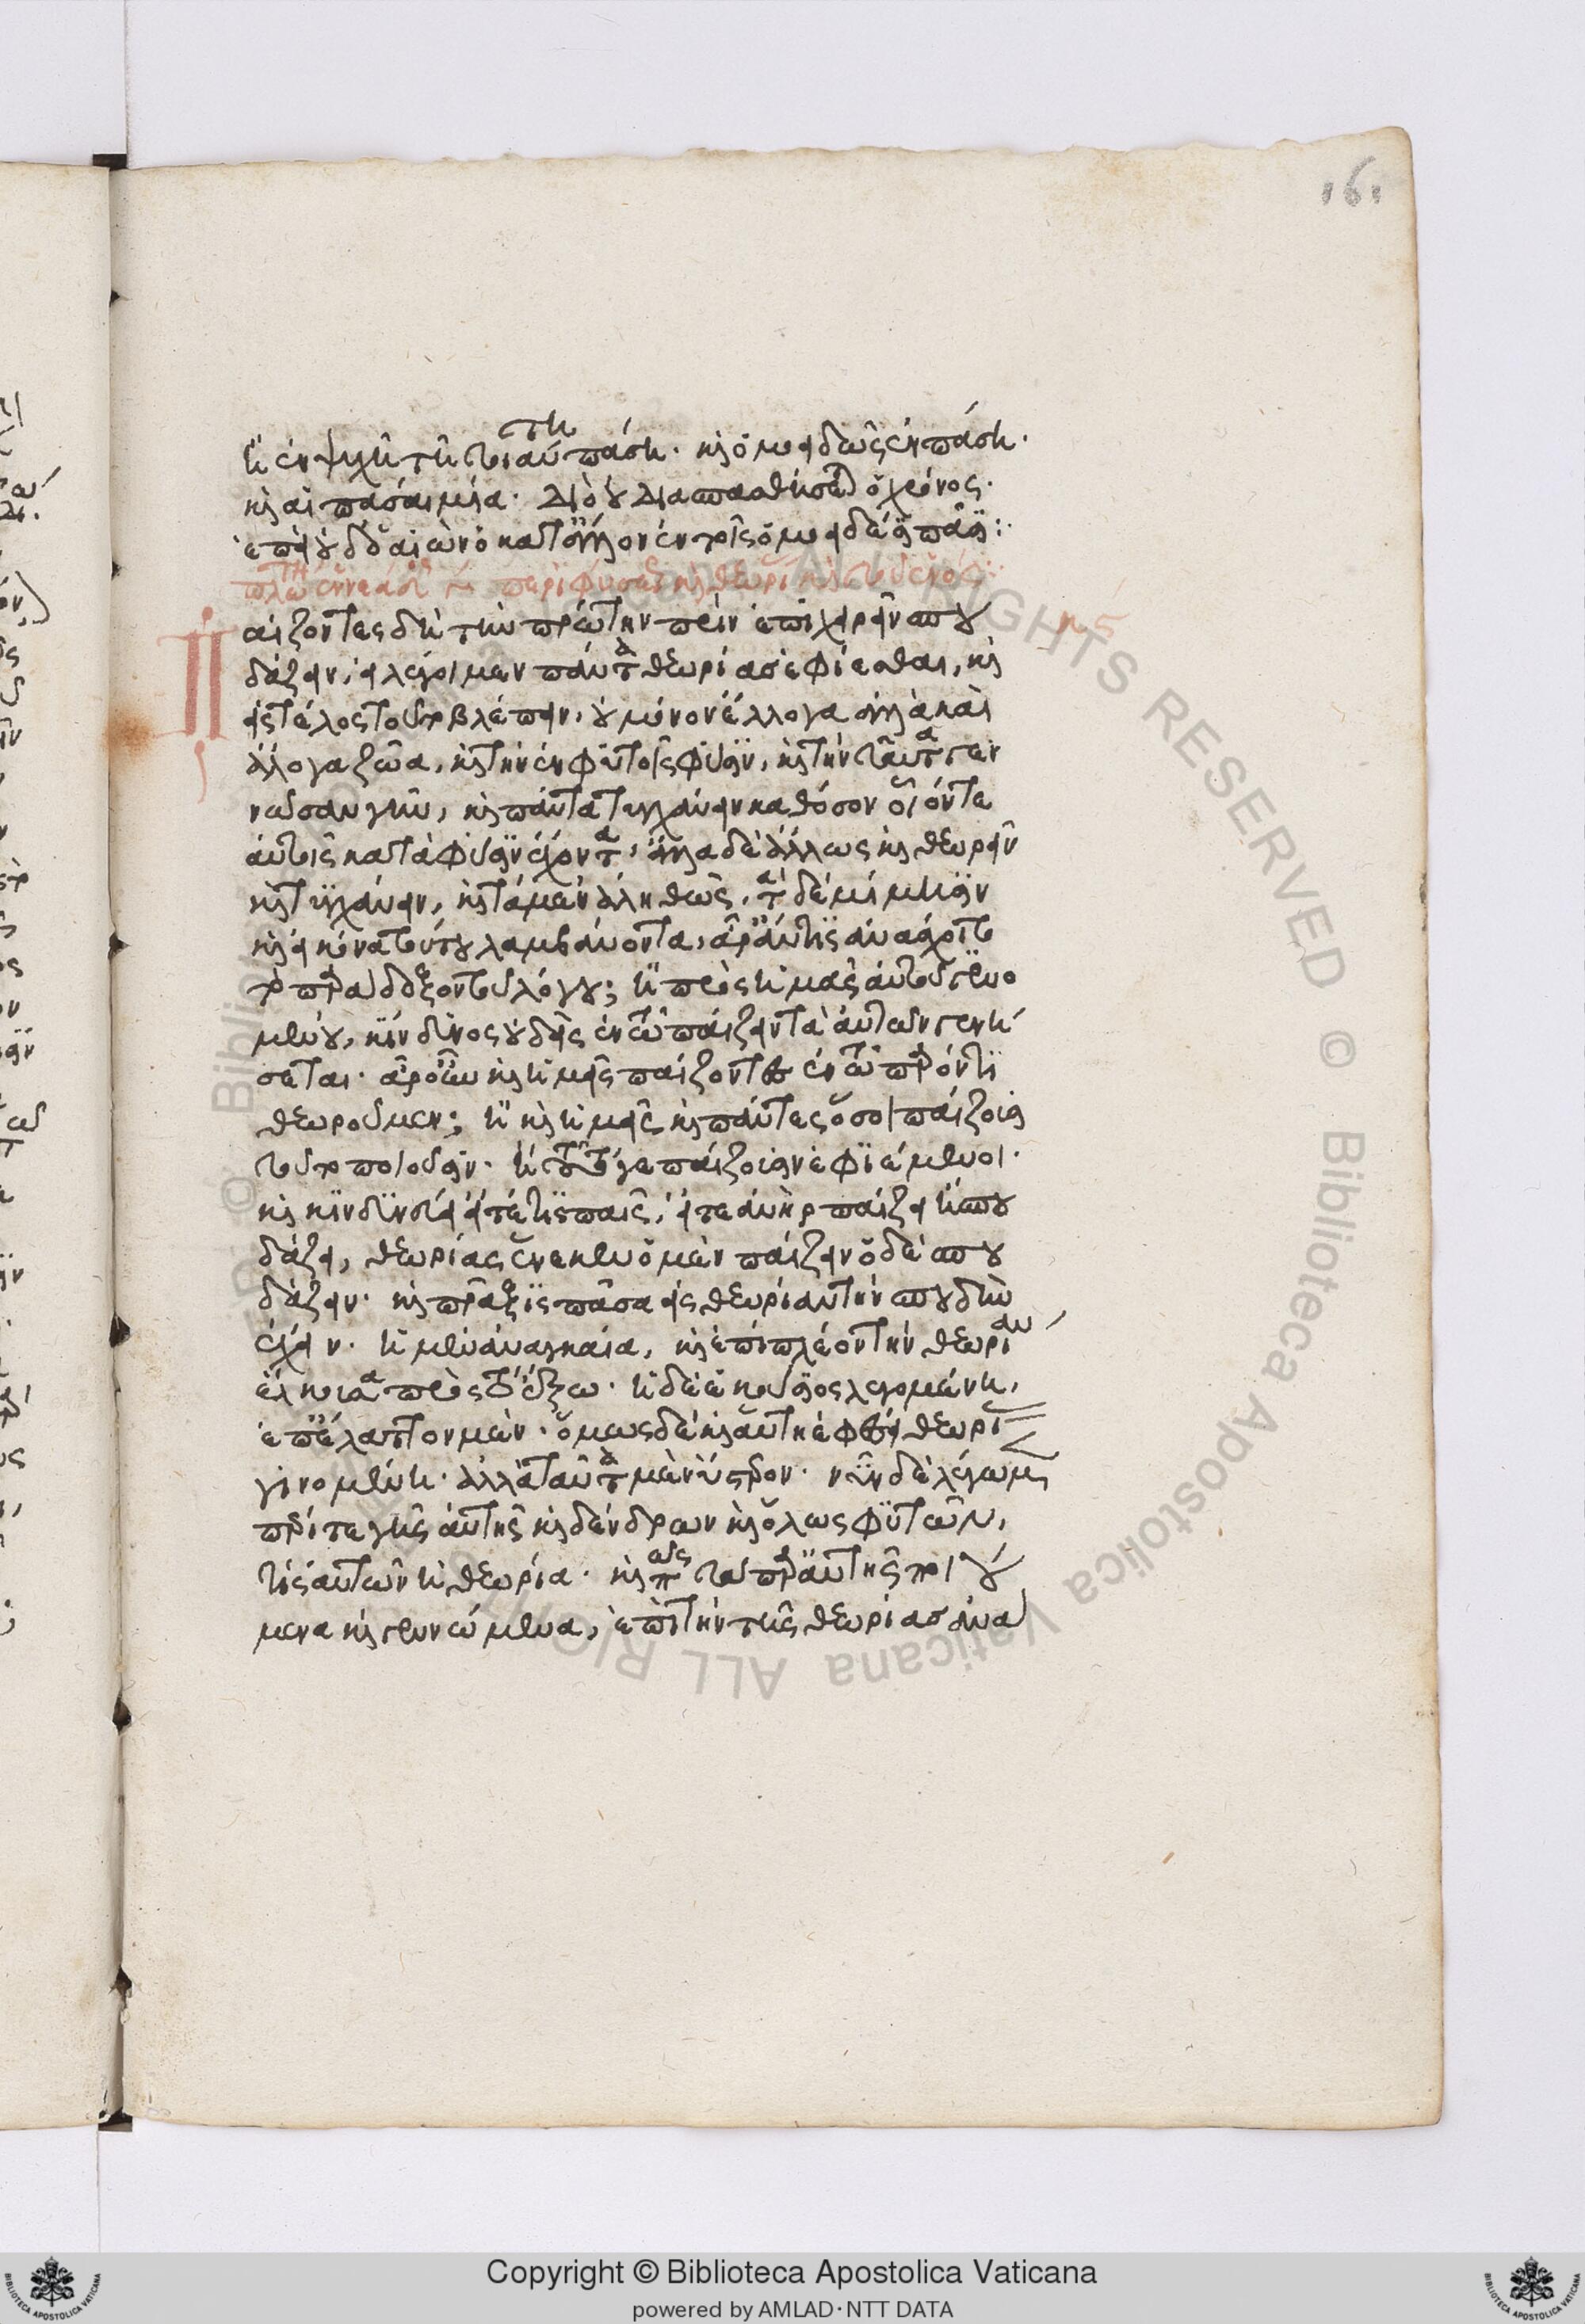 161
ἢ ἐν ψυχῇ τῇ τοιαύτῃ πάσῃ· καὶ ὁμοειδῶς ἐν πάσῃ·
καὶ αἱ πᾶσαι μία· διὸ οὐ διασπασθήσεται ὁ χρόνος·
ἐπεὶ οὐδ' ὁ αἰὼν ὁ κατ' ἄλλο ἐν τοῖς ὁμοειδέσι πᾶσιν:·
περὶ φύσεως καὶ θεωρίας καὶ τοῦ ἑνός:·
Παίζοντες δὴ τὴν πρώτην πρὶν ἐπιχειρεῖν σπου
δάζειν, εἰ λέγοιμεν πάντα θεωρίας ἐφίεσθαι, καὶ
εἰς τέλος τοῦτο βλέπειν, οὐ μόνον ἔλλογα ἀλλὰ καὶ
ἄλογα ζῶα, καὶ τὴν ἐν φυτοῖς φύσιν, καὶ τὴν ταῦτα γεν
νῶσαν γῆν, καὶ πάντα τυγχάνειν καθόσον οἷόν τε
αὐτοῖς κατὰ φύσιν ἔχοντα, ἄλλα δὲ ἄλλως καὶ θεωρεῖν
καὶ τυγχάνειν, καὶ τὰ μὲν ἀληθῶς, τὰ δὲ μίμησιν
καὶ εἰκόνα τούτου λαμβάνοντα, ἆρ' ἄν τις ἀνάσχοιτο
τὸ παράδοξον τοῦ λόγου; ἢ πρὸς ἡμᾶς αὐτοῦ γινο
μένου, κίνδυνος οὐδεὶς ἐν τῷ παίζειν τὰ αὐτῶν γενή
σεται· ἆρ' οὖν καὶ ἡμεῖς παίζοντες ἐν τῷ παρόντι
θεωροῦμεν; ἢ καὶ ἡμεῖς καὶ πάντες ὅσοι παίζουσι
τοῦτο ποιοῦσιν· ἢ τούτου γε παίζουσιν ἐφιέμενοι·
καὶ κινδυνεύει εἴτε τις παῖς, εἴτε ἀνὴρ παίζει ἢ σπου
δάζει, θεωρίας ἕνεκεν ὁ μὲν παίζειν ὁ δὲ σπου
δάζειν· καὶ πρᾶξις πᾶσα εἰς θεωρίαν τὴν σπουδὴν
ἔχειν· ἡ μὲν ἀναγκαία, καὶ ἐπιπλέον τὴν θεωρίαν
ἕλκουσα πρὸς τὸ ἔξω· ἡ δὲ ἑκούσιος λεγομένη,
ἐπ' ἔλαττον μὲν· ὅμως δὲ καὶ αὕτη ἐφέσει θεωρίας
γινομένη· ἀλλὰ ταῦτα μὲν ὕστερον· νῦν δὲ λέγωμεν
περί τε γῆς αὐτῆς καὶ δένδρων καὶ ὅλως φυτῶν,
τίς αὐτῶν ἡ θεωρία· καὶ πῶς τὰ παρ' αὐτῆς ποιού
μενα καὶ γεννώμενα, ἐπὶ τὴν τῆς θεωρίας ἀνα